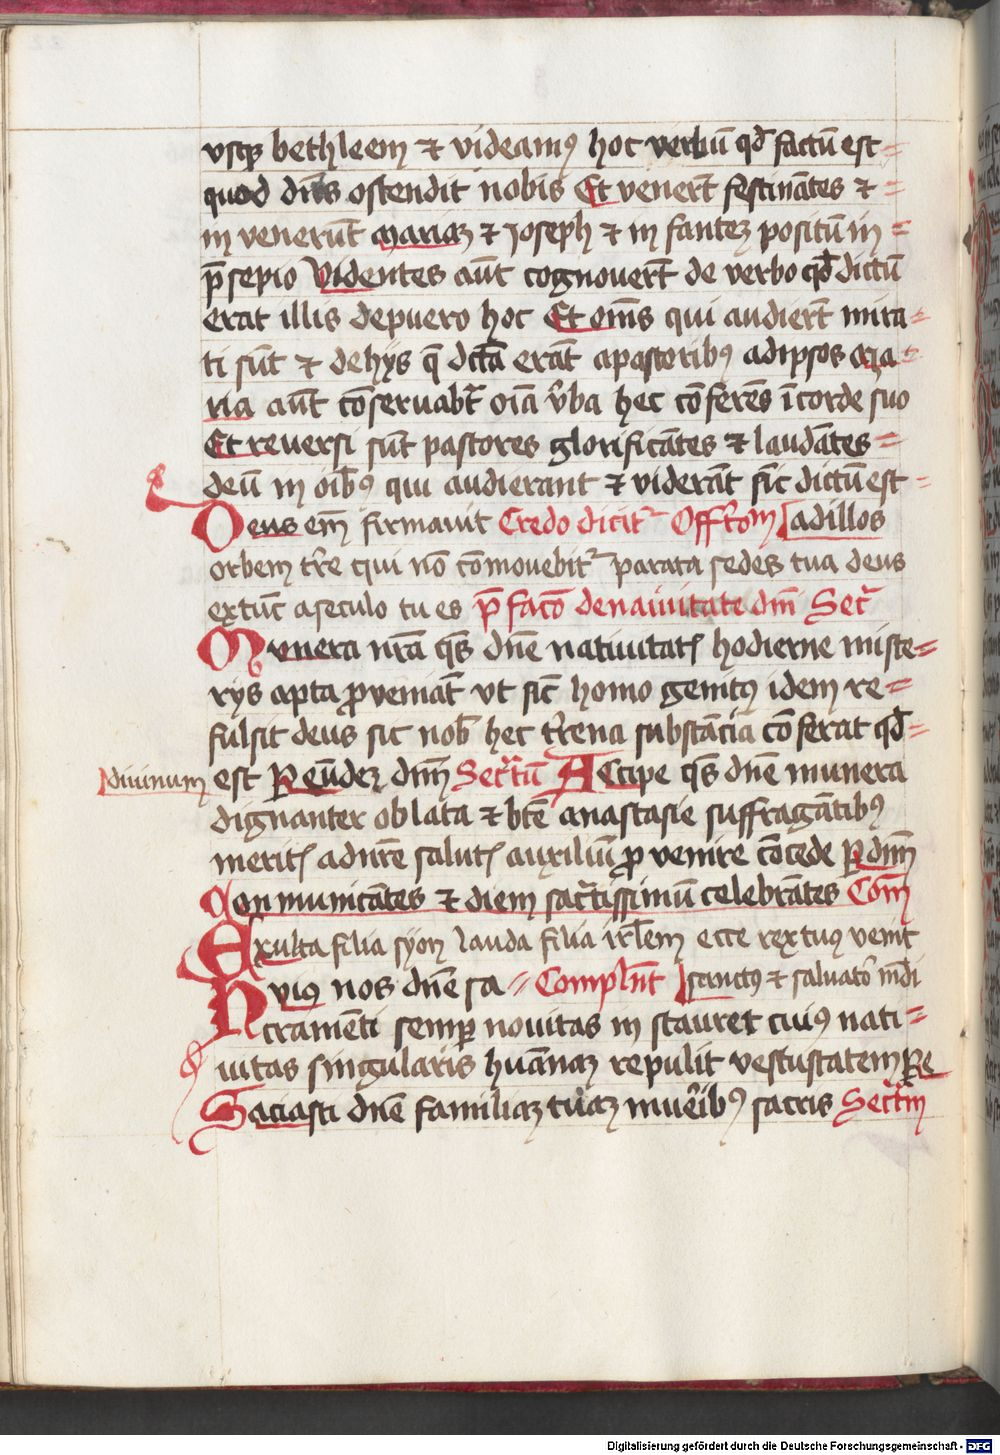 vsq3 bethleem ⁊ videamꝰ hoc verbū qd̄ factū est
quod dn̄s ostendit nobis Et venert̄ festinātes ⁊
in venerūt mariaꝫ ⁊ Joseph ⁊ in fanteꝫ positū in
p̄sepio Videntes aūt cognovert̄ de verbo qd̄ dictū
erat illis depuero hoc Et om̄s qui audiert̄ mira
ti sūt ⁊ dehÿs q̄ dc̄ta erāt apastoribꝰ adipsos ma
ria aūt cōservabat̄ oīa v̄ba hec cōferēs īcorde suo
Et reversi sūt pastores glorificātes ⁊ laudātes
deū in oībꝰ qui audierant ⁊ viderāt sīc dictū est
Deus em̄ firmavit Credo dicit᷑ Offr̄om ad illos
orbem tr̄e qui nō cōmovebit᷑ parata sedes tua deus
extūc aseculo tu es p̄faco denativitate dn̄i Secr̄
Munera nr̄a qs̄ dn̄e nativitatꝭ hodierne miste
rÿs apta ꝓveniāt vt sīc homo genitꝰ idem re
fulsit deus sic nob̄ hec tr̄rena substācia cōferat qd̄
divinum est P eūdeꝫ dn̄m Secr̄tū Accipe qs̄ dn̄e munera
dignanter oblata ⁊ btē anastasie suffragātibꝰ
meritꝭ adnr̄e salutꝭ auxiliū ꝓ venire cōcede P dn̄m
Con municātes ⁊ diem sacr̄tissimū celebrātes Com̄
Exulta filia sÿon lauda filia irl̄em ecce rex tuꝰ venit
Hvius nos dn̄e sa Compl̄nt sanctꝰ ⁊ salvator̄ mōdi
cramēti semp̄ novitas in stauret cuiꝰ nati
vitas singularis huānaꝫ repulit vestustatem Pe
Saciasti dn̄e familiaꝫ tuaꝫ muēribꝰ sacris Secr̄m
Digitalisierung gefördert durch die Deutsche Forschungsgemeinschaft - DFG